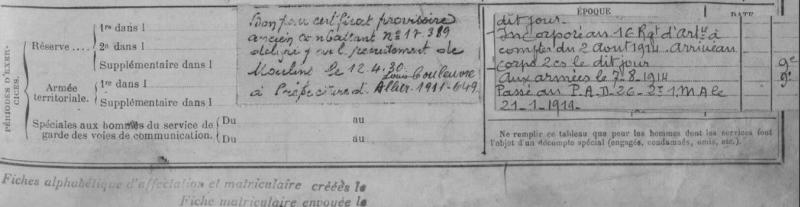 ÉPOQUE
DATE
PÉRIODES D'EXERCICES.
Réserve....
1re dans l
2e dans l
Supplémentaire dans l
Armée territoriale.
1re dans l
Supplémentaire dans l
Spéciales aux hommes du service de garde des voies de communication.
Du au
Du au
Bon pour certificat provisoire
ancien combattant n° 17.389
délivré par le recrutement de
Moulins le 12.4.30
Louis Couleuvre
à Préfecture d. Allier 1911-649
dit jour.
Incorporé au 16 Rgt d'Artie à
compter du 2 Août 1914. Arrivé au
corps 2cs le dit jour
Aux armées le 7-8-1914
Passé au P.A.D-26-
21-1-1919.
Ne remplir ce tableau que pour les hommes dont les services font
l'objet d'un décompte spécial (engagés, condamnés, omis, etc.).
Fiches alphabétique d'affectation et matriculaire créées le
Fiche matriculaire envoyée le